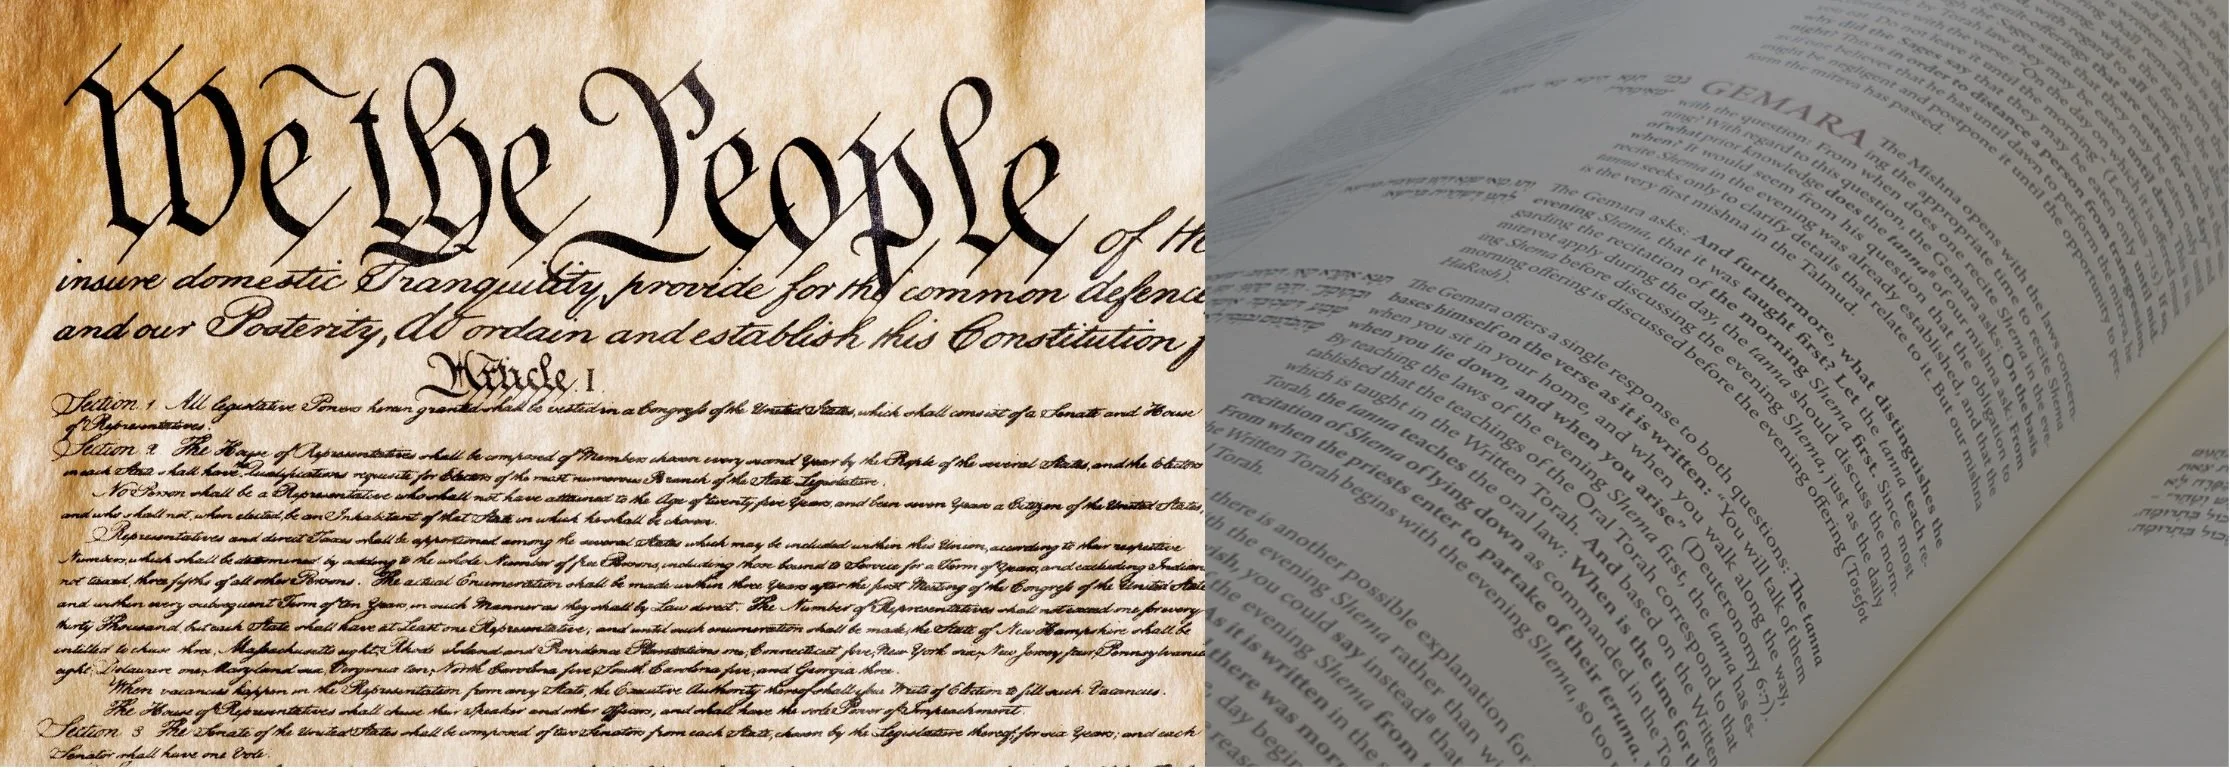 We the People of the
insure domestic Tranquility, provide for the common defence
and our Posterity, do ordain and establish this Constitution f
Article. I
Section. 1 All legislative Powers herein granted shall be vested in a Congress of the United States, which shall consist of a Senate and House
of Representatives.
Section. 2 The House of Representatives shall be composed of Members chosen every second Year by the People of the several States, and the Electors
in each State shall have the Qualifications requisite for Electors of the most numerous Branch of the State Legislature.
No Person shall be a Representative who shall not have attained to the Age of twenty five Years, and been seven Years a Citizen of the United States,
and who shall not, when elected, be an Inhabitant of that State in which he shall be chosen.
Representatives and direct Taxes shall be apportioned among the several States which may be included within this Union, according to their respective
Numbers, which shall be determined by adding to the whole Number of free Persons, including those bound to Service for a Term of Years, and excluding Indians
not taxed, three fifths of all other Persons. The actual Enumeration shall be made within three Years after the first Meeting of the Congress of the United State
and within every subsequent Term of ten Years, in such Manner as they shall by Law direct. The Number of Representatives shall not exceed one for every
thirty Thousand, but each State shall have at Least one Representative; and until such enumeration shall be made, the State of New Hampshire shall be
entitled to chuse three, Massachusetts eight, Rhode Island and Providence Plantations one, Connecticut five, New York six, New Jersey four, Pennsylvania
eight, Delaware one, Maryland six, Virginia ten, North Carolina five, South Carolina five, and Georgia three.
When vacancies happen in the Representation from any State, the Executive Authority thereof shall issue Writs of Election to fill such Vacancies.
The House of Representatives shall chuse their Speaker and other Officers, and shall have the sole Power of Impeachment.
Section. 3 The Senate of the United States shall be composed of two Senators from each State, chosen by the Legislature thereof, for six Years; and each
Senator shall have one Vote.
why did the Sages say that they may be eaten only until mid-
night? This is in order to distance a person from transgression,
might be negligent and postpone it until the opportunity to per-
form the mitzva has passed.
GEMARA The Mishna opens with the laws concern-
ing the appropriate time to recite Shema
with the question: From when does one recite Shema in the eve-
ning? With regard to this question, the Gemara asks: On the basis
of what prior knowledge does the tanna of our mishna ask: From
when? It would seem from his question that the obligation to
recite Shema in the evening was already established, and that the
tanna seeks only to clarify details that relate to it. But our mishna
is the very first mishna in the Talmud.
The Gemara asks: And furthermore, what distinguishes the
evening Shema, that it was taught first? Let the tanna teach re-
garding the recitation of the morning Shema first. Since most
mitzvot apply during the day, the tanna should discuss the morn-
ing Shema before discussing the evening Shema, just as the daily
morning offering is discussed before the evening offering (Tosefot
HaRosh).
The Gemara offers a single response to both questions: The tanna
bases himself on the verse as it is written: "You will talk of them
when you sit in your home, and when you walk along the way,
when you lie down, and when you arise" (Deuteronomy 6:7).
By teaching the laws of the evening Shema first, the tanna has es-
tablished that the teachings of the Oral Torah correspond to that
which is taught in the Written Torah. And based on the Written
Torah, the tanna teaches the oral law: When is the time for the
recitation of Shema of lying down as commanded in the To
From when the priests enter to partake of their teruma.
he Written Torah begins with the evening Shema, so too
l Torah.
there is another possible explanation for
th the evening Shema rather than wi
ish, you could say instead that
the evening Shema from
As it is written in the
there was mor
day begin
reas